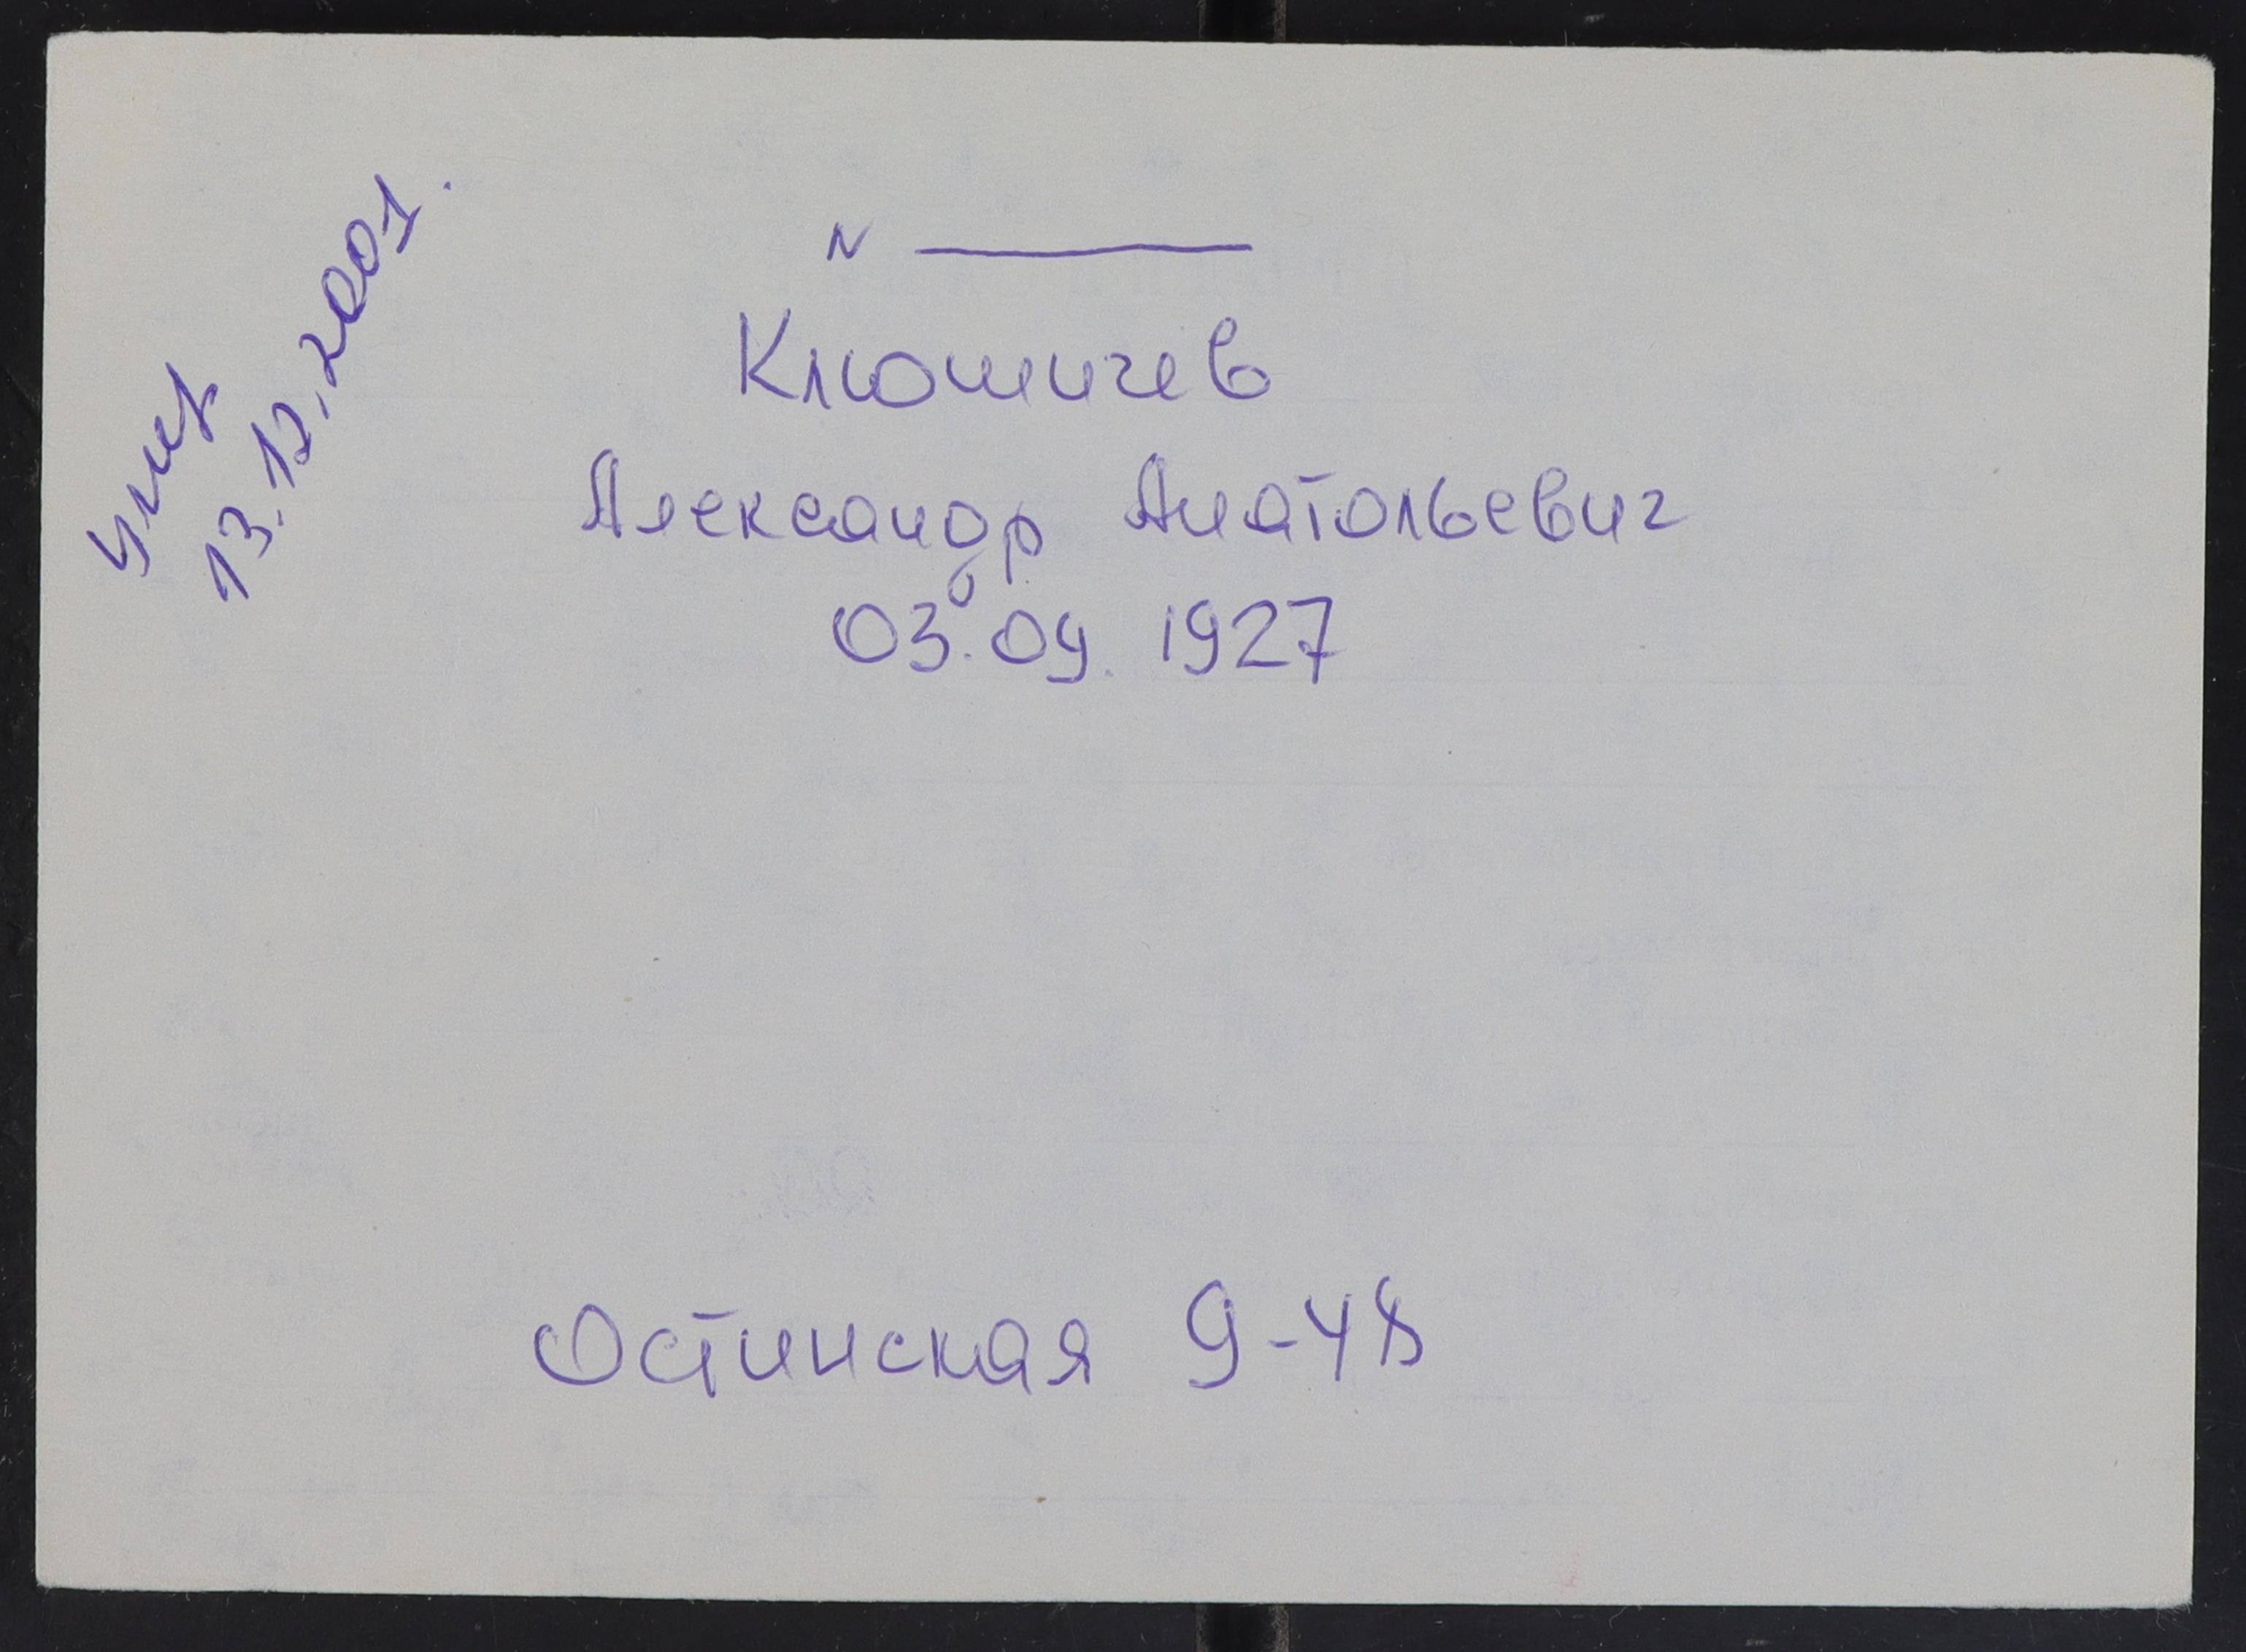 умер
13.12.2001.
N
Клюшичев
Александр Анатольевич
03.09.1927
Остинская 9-48